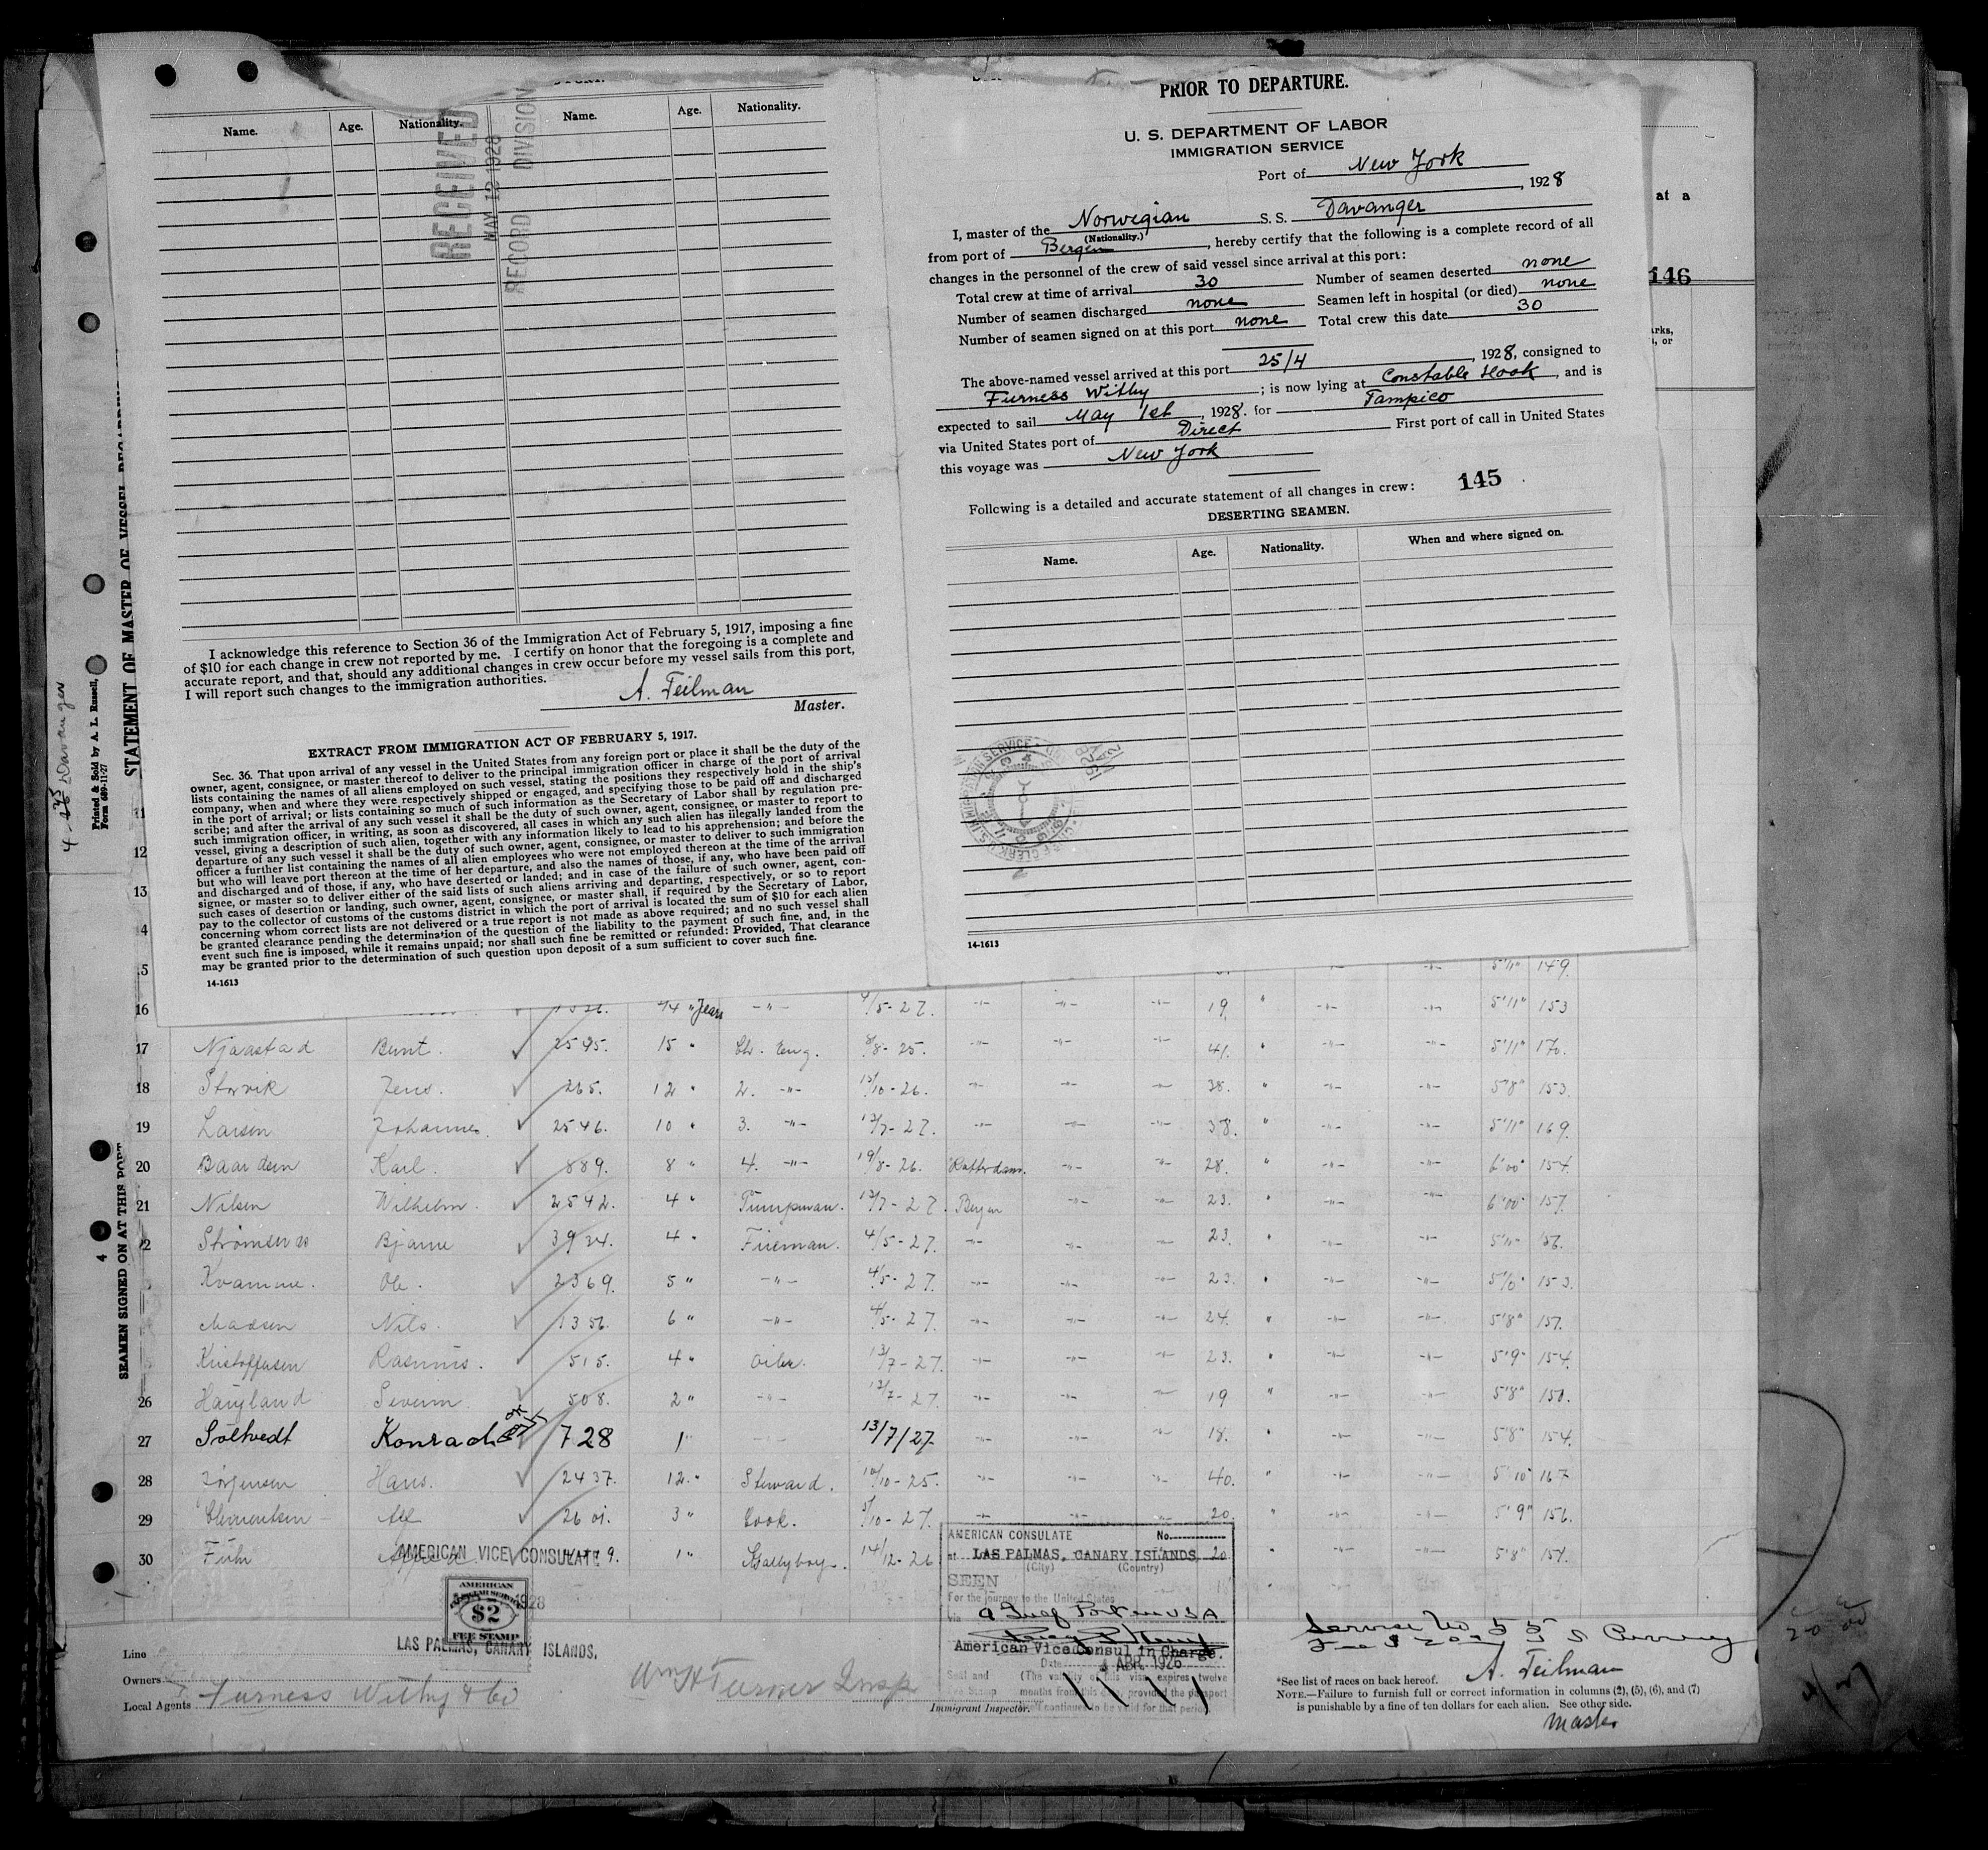 PRIOR TO DEPARTURE.
U. S. DEPARTMENT OF LABOR
IMMIGRATION SERVICE
Port of New York
, 1928
I, master of the Norwegian S. S. Davanger
(Nationality.)
from port of Bergen, hereby certify that the following is a complete record of all
changes in the personnel of the crew of said vessel since arrival at this port:
Total crew at time of arrival 30 Number of seamen deserted none
Number of seamen discharged none Seamen left in hospital (or died) none
Number of seamen signed on at this port none Total crew this date 30
The above-named vessel arrived at this port 25/4, 1928, consigned to
Furness Withy; is now lying at Constable Hook, and is
expected to sail May 1st, 1928. for Tampico
via United States port of Direct First port of call in United States
this voyage was New York
Following is a detailed and accurate statement of all changes in crew: 145
DESERTING SEAMEN.
Name. Age. Nationality. When and where signed on.
14-1613
Name. Age. Nationality. Name. Age. Nationality.
RECEIVED
MAY 12 1928
RECORD DIVISION
I acknowledge this reference to Section 36 of the Immigration Act of February 5, 1917, imposing a fine
of $10 for each change in crew not reported by me. I certify on honor that the foregoing is a complete and
accurate report, and that, should any additional changes in crew occur before my vessel sails from this port,
I will report such changes to the immigration authorities.
A. Teilman
Master.
EXTRACT FROM IMMIGRATION ACT OF FEBRUARY 5, 1917.
Sec. 36. That upon arrival of any vessel in the United States from any foreign port or place it shall be the duty of the
owner, agent, consignee, or master thereof to deliver to the principal immigration officer in charge of the port of arrival
lists containing the names of all aliens employed on such vessel, stating the positions they respectively hold in the ship's
company, when and where they were respectively shipped or engaged, and specifying those to be paid off and discharged
in the port of arrival; or lists containing so much of such information as the Secretary of Labor shall by regulation pre-
scribe; and after the arrival of any such vessel it shall be the duty of such owner, agent, consignee, or master to report to
such immigration officer, in writing, as soon as discovered, all cases in which any such alien has illegally landed from the
vessel, giving a description of such alien, together with any information likely to lead to his apprehension; and before the
departure of any such vessel it shall be the duty of such owner, agent, consignee, or master to deliver to such immigration
officer a further list containing the names of all alien employees who were not employed thereon at the time of the arrival
but who will leave port thereon at the time of her departure, and also the names of those, if any, who have been paid off
and discharged and of those, if any, who have deserted or landed; and in case of the failure of such owner, agent, con-
signee, or master so to deliver either of the said lists of such aliens arriving and departing, respectively, or so to report
such cases of desertion or landing, such owner, agent, consignee, or master shall, if required by the Secretary of Labor,
pay to the collector of customs of the customs district in which the port of arrival is located the sum of $10 for each alien
concerning whom correct lists are not delivered or a true report is not made as above required; and no such vessel shall
be granted clearance pending the determination of the question of the liability to the payment of such fine, and, in the
event such fine is imposed, while it remains unpaid; nor shall such fine be remitted or refunded: Provided, That clearance
may be granted prior to the determination of such question upon deposit of a sum sufficient to cover such fine.
14-1613
at a
146
Printed & Sold by A. L. Russell,
Form 689-11-27
STATEMENT OF MASTER OF VESSEL
SEAMEN SIGNED ON AT THIS PORT
Davanger
11
12
13
5'11" 149.
16 4 " Years -"- 4/5-27. 19 5'11" 153
17 Njaastad Bernt. 2545. 15 " Ch. Eng. 8/8-25. 41. 5'11" 170.
18 Storvik Jens. 265. 12 " 2. -"- 13/10-26. 38. 5'8" 153.
19 Larsen Johannes. 2546. 10 " 3. -"- 13/7-27. 38. 5'11" 169.
20 Baardsen Karl. 889. 8 " 4. -"- 19/8-26. Rotterdam. 28. 6'00" 154.
21 Nilsen Wilhelm. 2542. 4 " Pumpman. 13/7-27. Bergen 23. 6'00" 157.
Bjarne 3924. 4 " Fireman. 4/5-27. 23. 5'11" 156.
Kvamme. Ole. 2369. 5 " -"- 4/5-27. 23. 153.
Madsen Nils. 1356. 6 " -"- 4/5-27. 24. 5'8" 157.
Kristoffersen Rasmus. 515. 4 " Oiler. 13/7-27. 23. 5'9" 154.
26 Haugland Severin. 508. 2 " -"- 13/7-27. 19 5'8" 150.
27 Soltvedt Konrad 728 1" 13/7/27 18. 5'8" 154.
28 Jorgensen Hans. 2437. 12 " Steward. 10/10-25. 40. 5'10" 167
29 Clementsen Alf 2601. 3 " Cook. 5/10-27. 20. 5'9" 156.
30 Führ 1" Galleyboy. 14/12-26 20 5'8" 154.
AMERICAN VICE CONSULATE
AMERICAN
$2
FEE STAMP
1928
LAS PALMAS, CANARY ISLANDS.
AMERICAN CONSULATE No.
at LAS PALMAS, CANARY ISLANDS
(City) (Country)
SEEN
For the journey to the United States
via a Gulf Port in USA
American Vice Consul in Charge.
Date APR 1928
Seal and (The validity of this visa expires twelve
Fee Stamp months from this date, provided the passport
continues to be valid for that period
Line
Owners
Local Agents Furness Withy & Co
Wm H Turner Insp
Immigrant Inspector.
*See list of races on back hereof.
A. Teilman
NOTE.—Failure to furnish full or correct information in columns (2), (5), (6), and (7)
is punishable by a fine of ten dollars for each alien. See other side.
Master